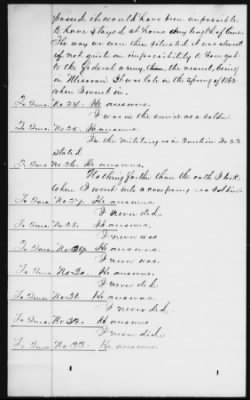 passed it would have been impossible
to have stayed at home any length of time.
The way we were then situated it was almost
if not quite an impossibility to have got
to the Federal army then, the nearest being
in Missouri. It was late in the Spring of 1862
when I went in.
To Ques. No 24. He answers.
I was in the service as a soldier
To Ques. No 25. He answers.
In the military as in Question No 23
stated.
To Ques. No 26. He answers.
Nothing further than the oath I took
when I went into a company as soldier.
To Ques. No 27. He answers.
I never did.
To Ques. No 28. He answers.
I never was
To Ques. No 29. He answers.
I never was.
To Ques. No 30. He answers.
I never did.
To Ques. No 31. He answers.
I never did.
To Ques. No 32. He answers
I never did.
To Ques. No 33. He answers.